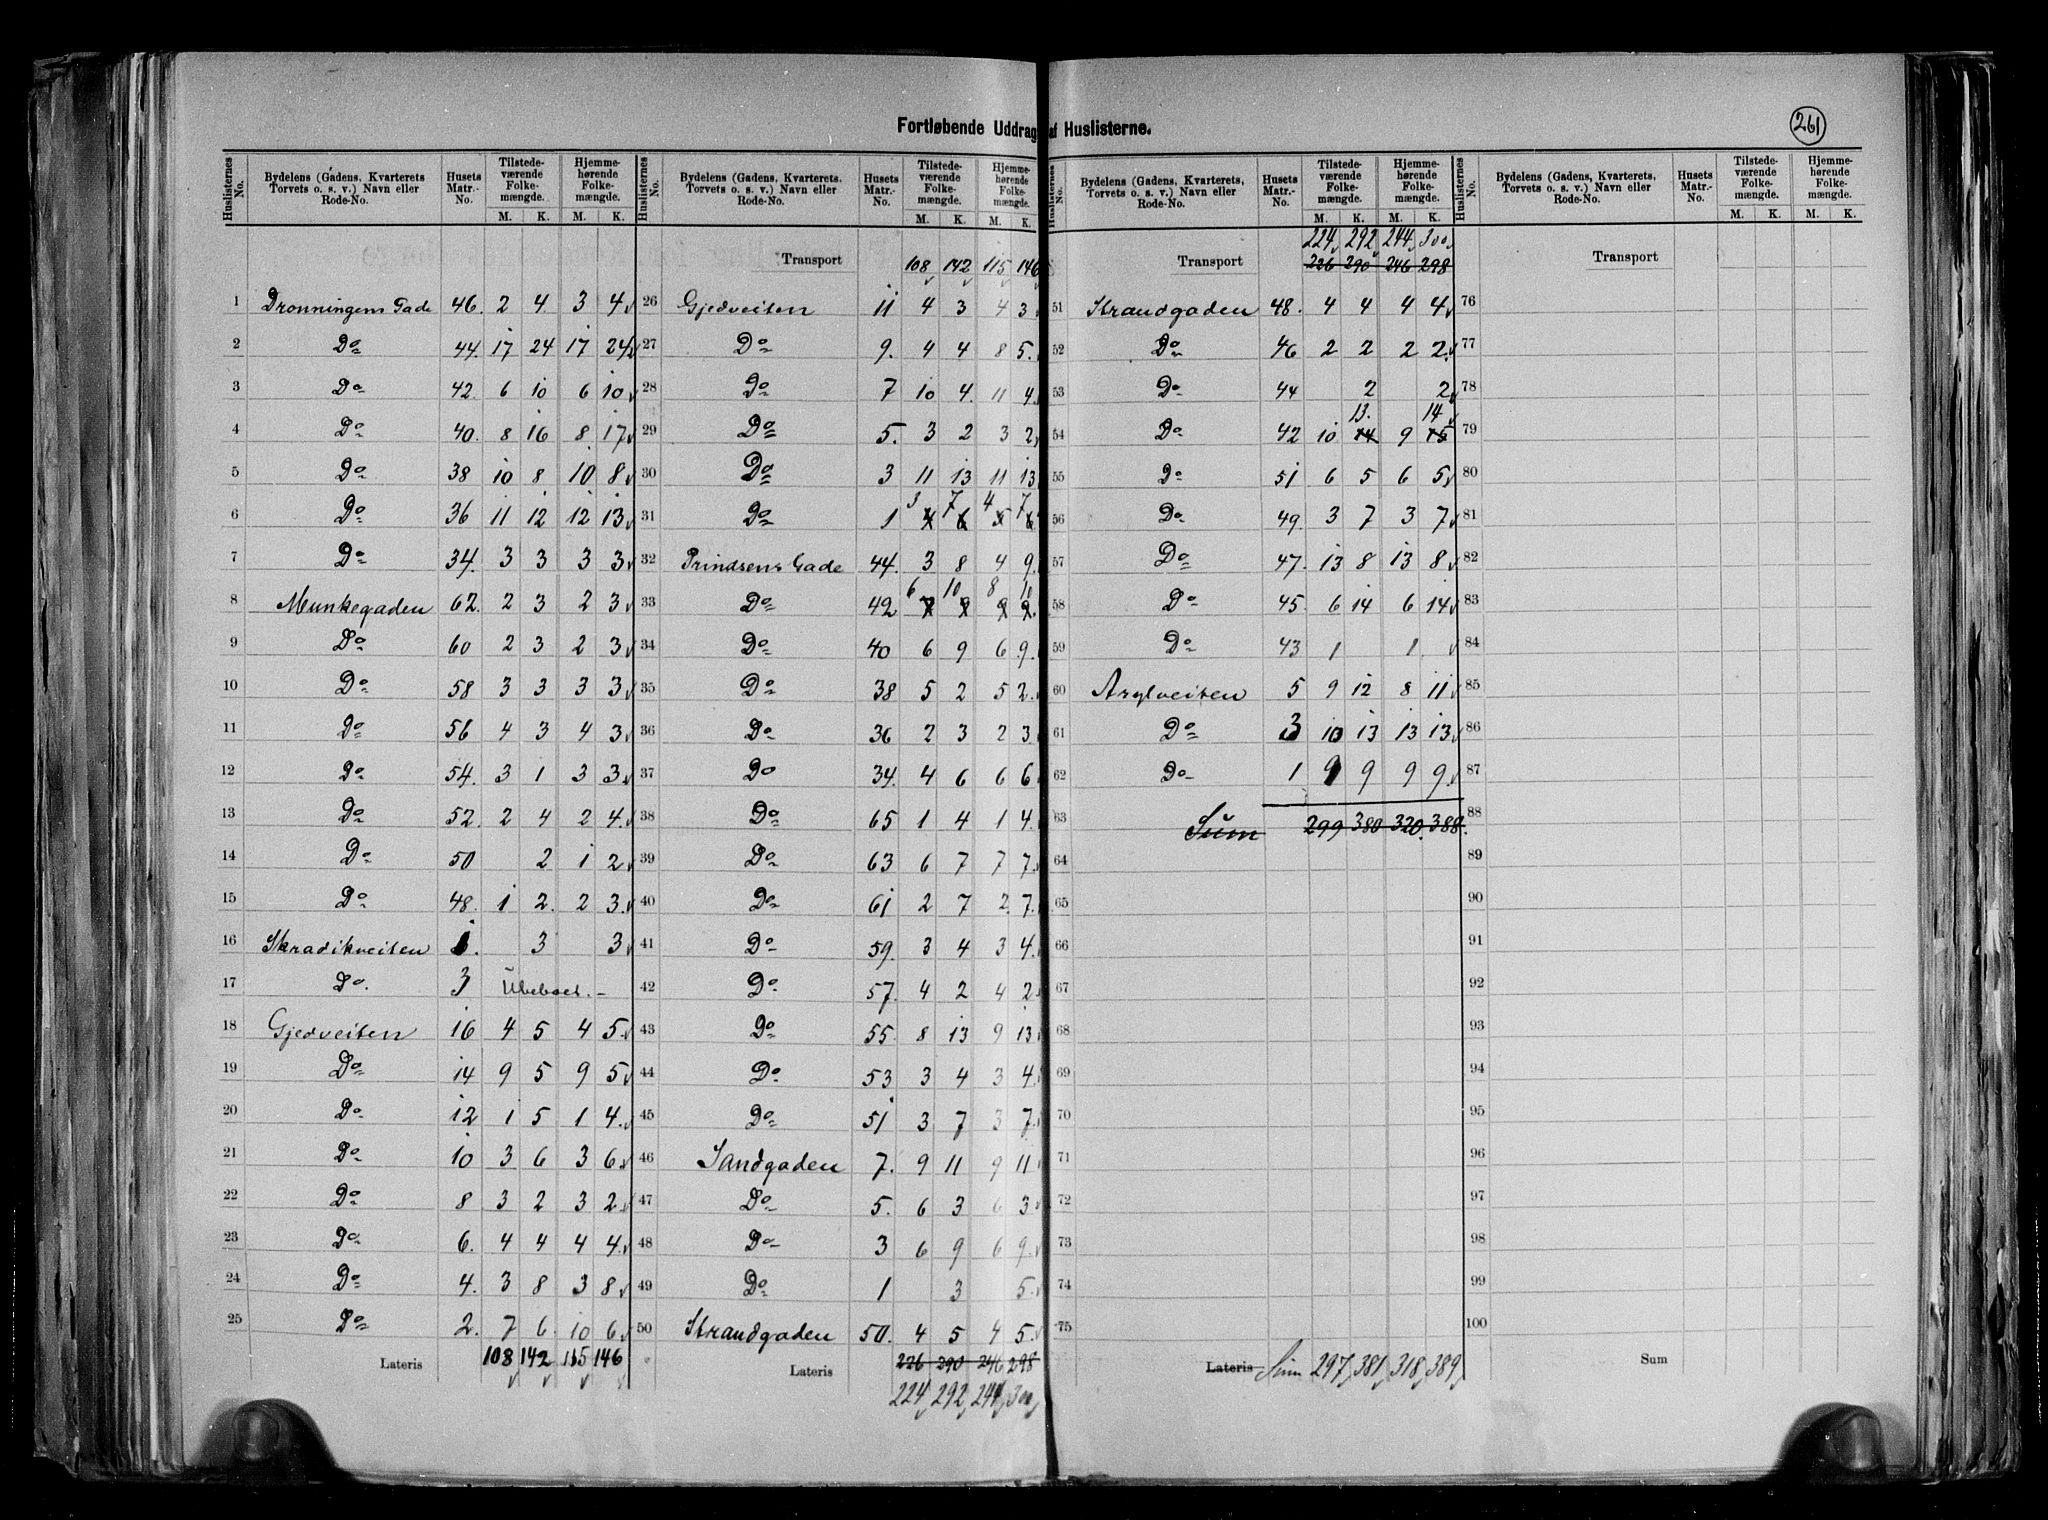 261
Fortløbende Uddrag af Huslisterne.
Huslisternes No. | Bydelens (Gadens, Kvarterets, Torvets o. s. v.) Navn eller Rode-No. | Husets Matr.-No. | Tilstedeværende Folkemængde. M. K. | Hjemmehørende Folkemængde. M. K.
1 Dronningens Gade 46. 2 4 3 4
2 Do 44. 17 24 17 24
3 Do 42. 6 10 6 10
4 Do 40. 8 16 8 17
5 Do 38 10 8 10 8
6 Do 36 11 12 12 13
7 Do 34. 3 3 3 3
8 Munkegaden 62. 2 3 2 3
9 Do 60 2 3 2 3
10 Do 58 3 3 3 3
11 Do 56 4 3 4 3
12 Do 54. 3 1 3 3
13 Do 52. 2 4 2 4
14 Do 50 2 1 2
15 Do 48. 1 2 2 3
16 Skradikveiten 1. 3 3
17 Do. 3 Ubeboet. -
18 Gjedveiten 16 4 5 4 5
19 Do 14 9 5 9 5
20 Do 12 1 5 1 4
21 Do 10 3 6 3 6
22 Do 8 3 2 3 2
23 Do 6. 4 4 4 4
24 Do 4. 3 8 3 8
25 Do 2. 7 6 10 6
Lateris 108 142 115 146
Huslisternes No. | Bydelens (Gadens, Kvarterets, Torvets o. s. v.) Navn eller Rode-No. | Husets Matr.-No. | Tilstedeværende Folkemængde. M. K. | Hjemmehørende Folkemængde. M. K.
Transport 108 142 115 146
26 Gjedveiten 11 4 3 4 3
27 Do 9. 4 4 8 5.
28 Do 7 10 4 11 4
29 Do 5. 3 2 3 2
30 Do 3 11 13 11 13
3 7 4 7
31 Do 1 4 6 5 6
32 Prindsens Gade 44. 3 8 4 9.
6 10 8 10
33 Do 42 7 9 9 9
34 Do 40 6 9 6 9.
35 Do 38 5 2 5 2.
36 Do 36 2 3 2 3
37 Do 34. 4 6 6 6
38 Do 65 1 4 1 4.
39 Do 63 6 7 7 7
40 Do 61 2 7 2 7.
41 Do 59. 3 4 3 4.
42 Do 57. 4 2 4 2
43 Do 55. 8 13 9 13
44 Do 53 3 4 3 4.
45 Do 51 3 7 3 7
46 Sandgaden 7. 9 11 9 11
47 Do 5. 6 3 6 3
48 Do 3 6 9 6 9.
49 Do 1 3 5.
50 Strandgaden 50. 4 5 4 5.
Lateris 226 290 246 298
224 292 244 300
Huslisternes No. | Bydelens (Gadens, Kvarterets, Torvets o. s. v.) Navn eller Rode-No. | Husets Matr.-No. | Tilstedeværende Folkemængde. M. K. | Hjemmehørende Folkemængde. M. K.
224 292 244 300
Transport 226 290 246 298
51 Strandgaden 48. 4 4 4 4
52 Do 46 2 2 2 2.
53 Do 44 2 2
13. 14
54 Do 42 10 14 9 15
55 Do 51 6 5 6 5
56 Do 49. 3 7 3 7
57 Do 47. 13 8 13 8
58 Do 45. 6 14 6 14
59 Do 43 1 1
60 Arylveiten 5 9 12 8 11
61 Do 3 10 13 13 13
62 Do 1 9 9 9 9
63 Sum 299 380 320. 388.
64
65
66
67
68
69
70
71
72
73
74
75
Lateris Sum 297 381 318 389
Huslisternes No. | Bydelens (Gadens, Kvarterets, Torvets o. s. v.) Navn eller Rode-No. | Husets Matr.-No. | Tilstedeværende Folkemængde. M. K. | Hjemmehørende Folkemængde. M. K.
Transport
76
77
78
79
80
81
82
83
84
85
86
87
88
89
90
91
92
93
94
95
96
97
98
99
100
Sum